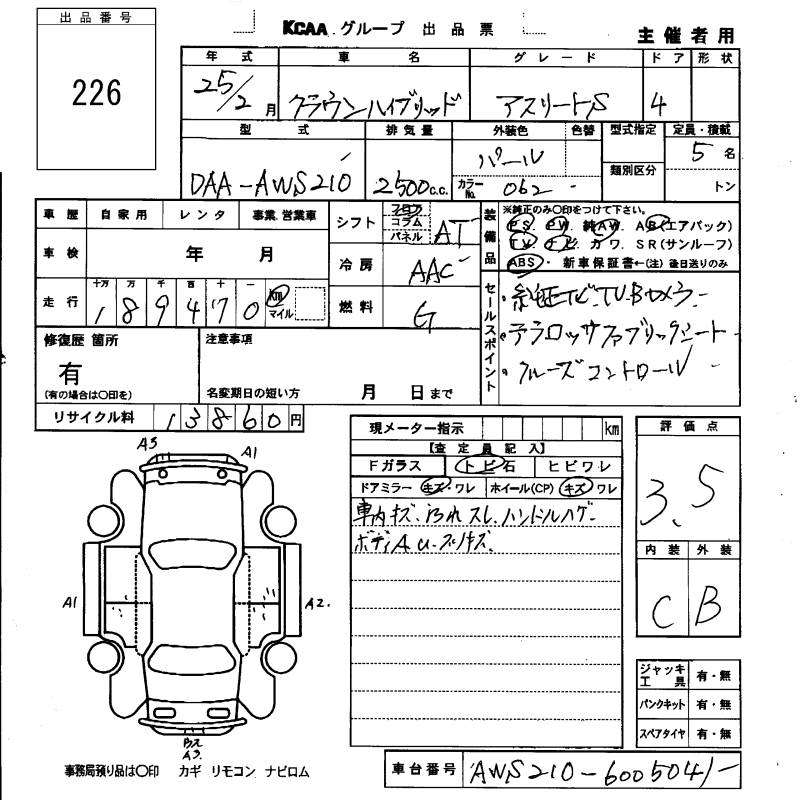 出品番号
226
KCAA. グループ 出品票
主催者用
年式 車名 グレード ドア 形状
25/2月 クラウンハイブリッド アスリートS 4
型式 排気量 外装色 色替 型式指定 定員・積載
類別区分
DAA-AWS210 2500c.c. パール 5名
カラーNo. 062 トン
車歴 自家用 レンタ 事業.営業車
車検 年 月
走行 十万 万 千 百 十 一
1 8 9 4 7 0 km マイル
シフト フロア コラム パネル AT
冷房 AAC
燃料 G
装備品
※純正のみ〇印をつけて下さい。
PS. PW. 純AW. AB(エアバック)
TV. ナビ. カワ. SR(サンルーフ)
ABS・ 新車保証書←(注) 後日送りのみ
セールスポイント
純正ナビ・TV・Bカメラ
テラロッサファブリックシート
クルーズコントロール
修復歴 箇所
有
(有の場合は〇印を)
注意事項
名変期日の短い方 月 日まで
リサイクル料 13860円
現メーター指示 km
【査定員記入】
Fガラス トビ石 ヒビワレ
ドアミラー キズ・ワレ ホイール(CP) キズ ワレ
車内キズ・汚れ スレ.ハンドルハゲ
ボディAU・スリキズ
評価点
3.5
内装 外装
C B
A3 A1
A1 A2.
A3
ジャッキ工具 有・無
パンクキット 有・無
スペアタイヤ 有・無
事務局預り品は〇印 カギ リモコン ナビロム
車台番号 AWS210-6005041